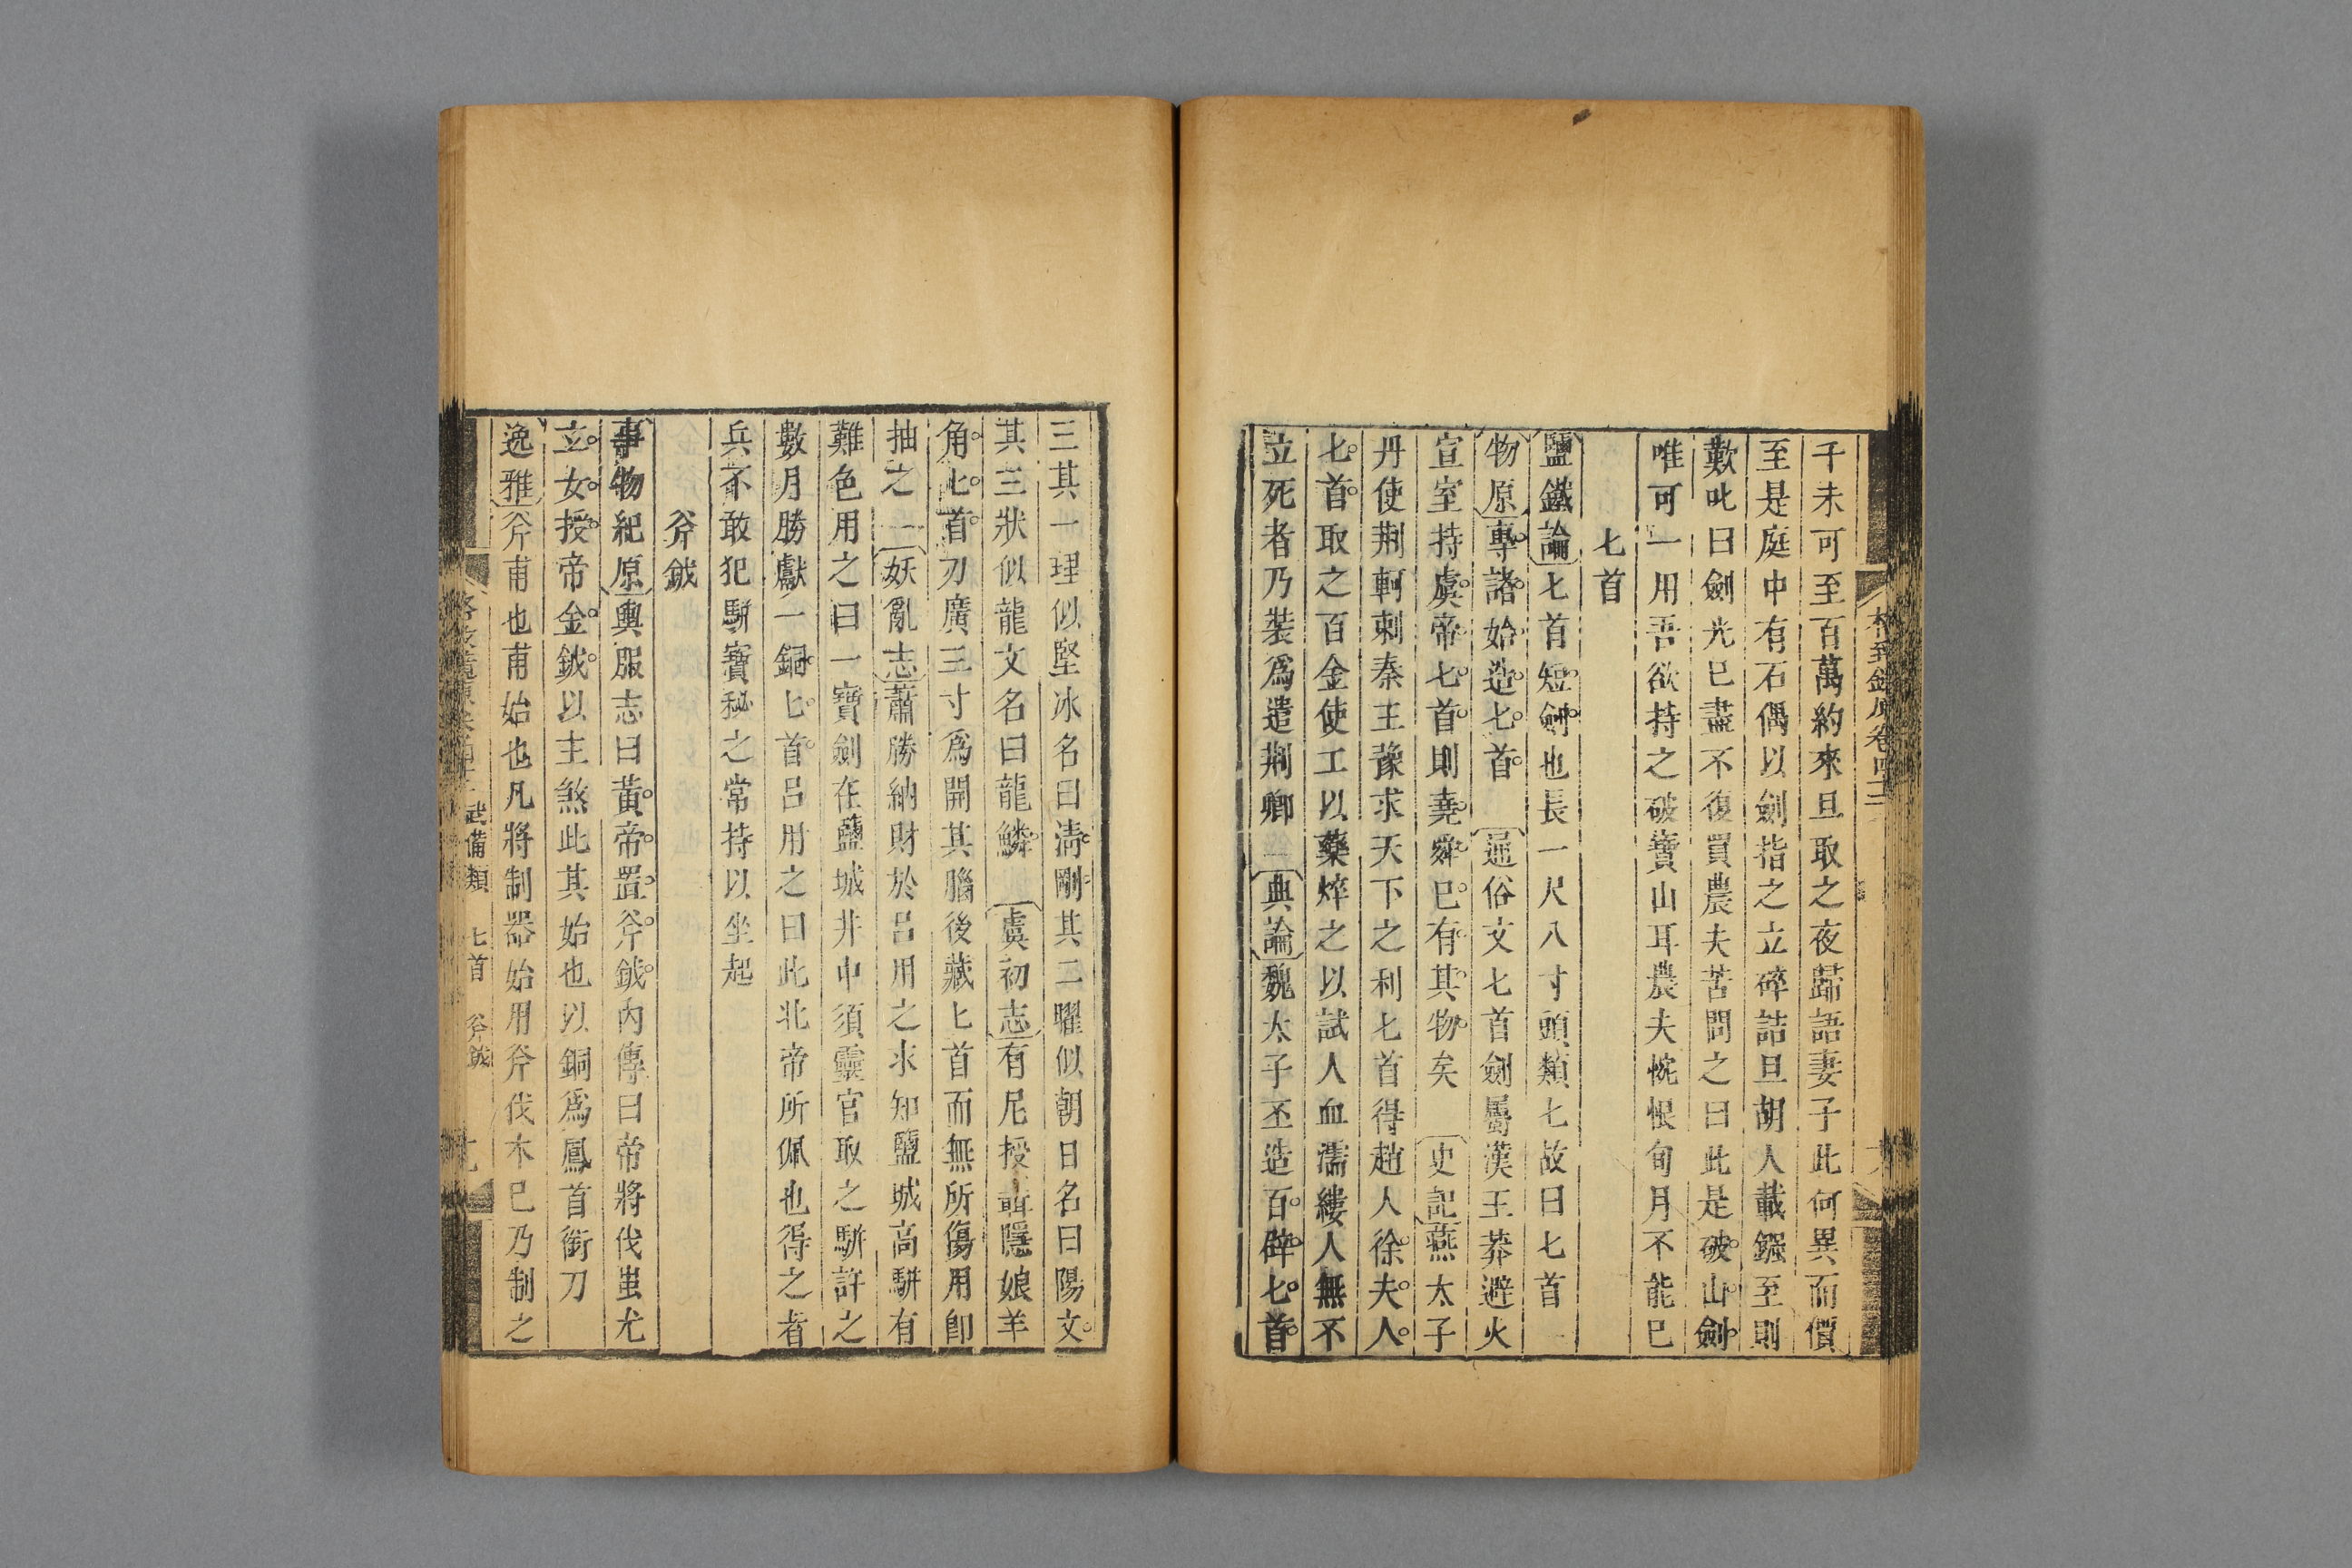 千未可至百萬約來旦取之夜歸語妻子此何異而價
至是庭中有石偶以劍指之立碎詰旦胡人載鏹至則
歎叱曰劍光已盡不復買農夫苦問之曰此是破山劍
唯可一用吾欲持之破寶山耳農夫惋恨旬月不能已
匕首
鹽鐵論匕首短劍也長一尺八寸頭類匕故曰匕首
物原專諸始造匕首 通俗文匕首劍屬漢王莽避火
宣室持虞帝匕首則堯舜已有其物矣 史記燕太子
丹使荆軻刺秦王豫求天下之利匕首得趙人徐夫人
匕首取之百金使工以藥焠之以試人血濡縷人無不
立死者乃裝爲遣荆卿 典論魏太子丕造百辟匕首
三其一理似堅冰名曰清剛其二曜似朝日名曰陽文
其三狀似龍文名曰龍鱗 虞初志有尼授聶隱娘羊
角匕首刀廣三寸爲開其腦後藏匕首而無所傷用卽
抽之 妖亂志蕭勝納財於呂用之求知鹽城高駢有
難色用之曰一寶劍在鹽城井中須靈官取之駢許之
數月勝獻一銅匕首呂用之曰此北帝所佩也得之者
兵不敢犯駢寶秘之常持以坐起
斧鉞
事物紀原輿服志曰黃帝置斧鉞內傳曰帝將伐蚩尤
立女授帝金鉞以主煞此其始也以銅爲鳳首銜刀
逸雅斧甫也甫始也凡將制器始用斧伐木已乃制之
武備類 匕首 斧鉞